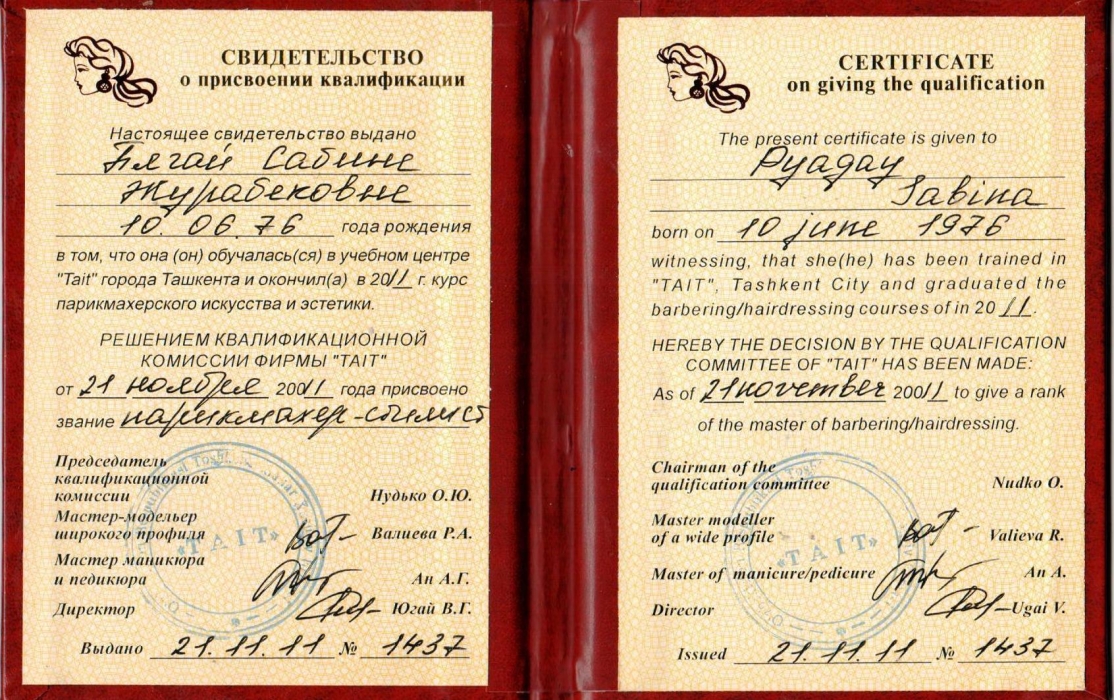 СВИДЕТЕЛЬСТВО
о присвоении квалификации
Настоящее свидетельство выдано
Пягай Сабине
Журабековне
10. 06. 76 года рождения
в том, что она (он) обучалась(ся) в учебном центре
"Tait" города Ташкента и окончил(а) в 2011 г. курс
парикмахерского искусства и эстетики.
РЕШЕНИЕМ КВАЛИФИКАЦИОННОЙ
КОМИССИИ ФИРМЫ "TAIT"
от 21 ноября 20011 года присвоено
звание парикмахер-стилист
Председатель
квалификационной
комиссии Нудько О.Ю.
Мастер-модельер
широкого профиля Валиева Р.А.
Мастер маникюра
и педикюра Ан А.Г.
Директор Югай В.Г.
Выдано 21. 11. 11 № 1437
«TAIT»
CERTIFICATE
on giving the qualification
The present certificate is given to
Pyagay
Sabina
born on 10 june 1976
witnessing, that she(he) has been trained in
"TAIT", Tashkent City and graduated the
barbering/hairdressing courses of in 20 11.
HEREBY THE DECISION BY THE QUALIFICATION
COMMITTEE OF "TAIT" HAS BEEN MADE:
As of 21 november 20011 to give a rank
of the master of barbering/hairdressing.
Chairman of the
qualification committee Nudko O.
Master modeller
of a wide profile Valieva R.
Master of manicure/pedicure An A.
Director Ugai V.
Issued 21. 11. 11 № 1437
«TAIT»